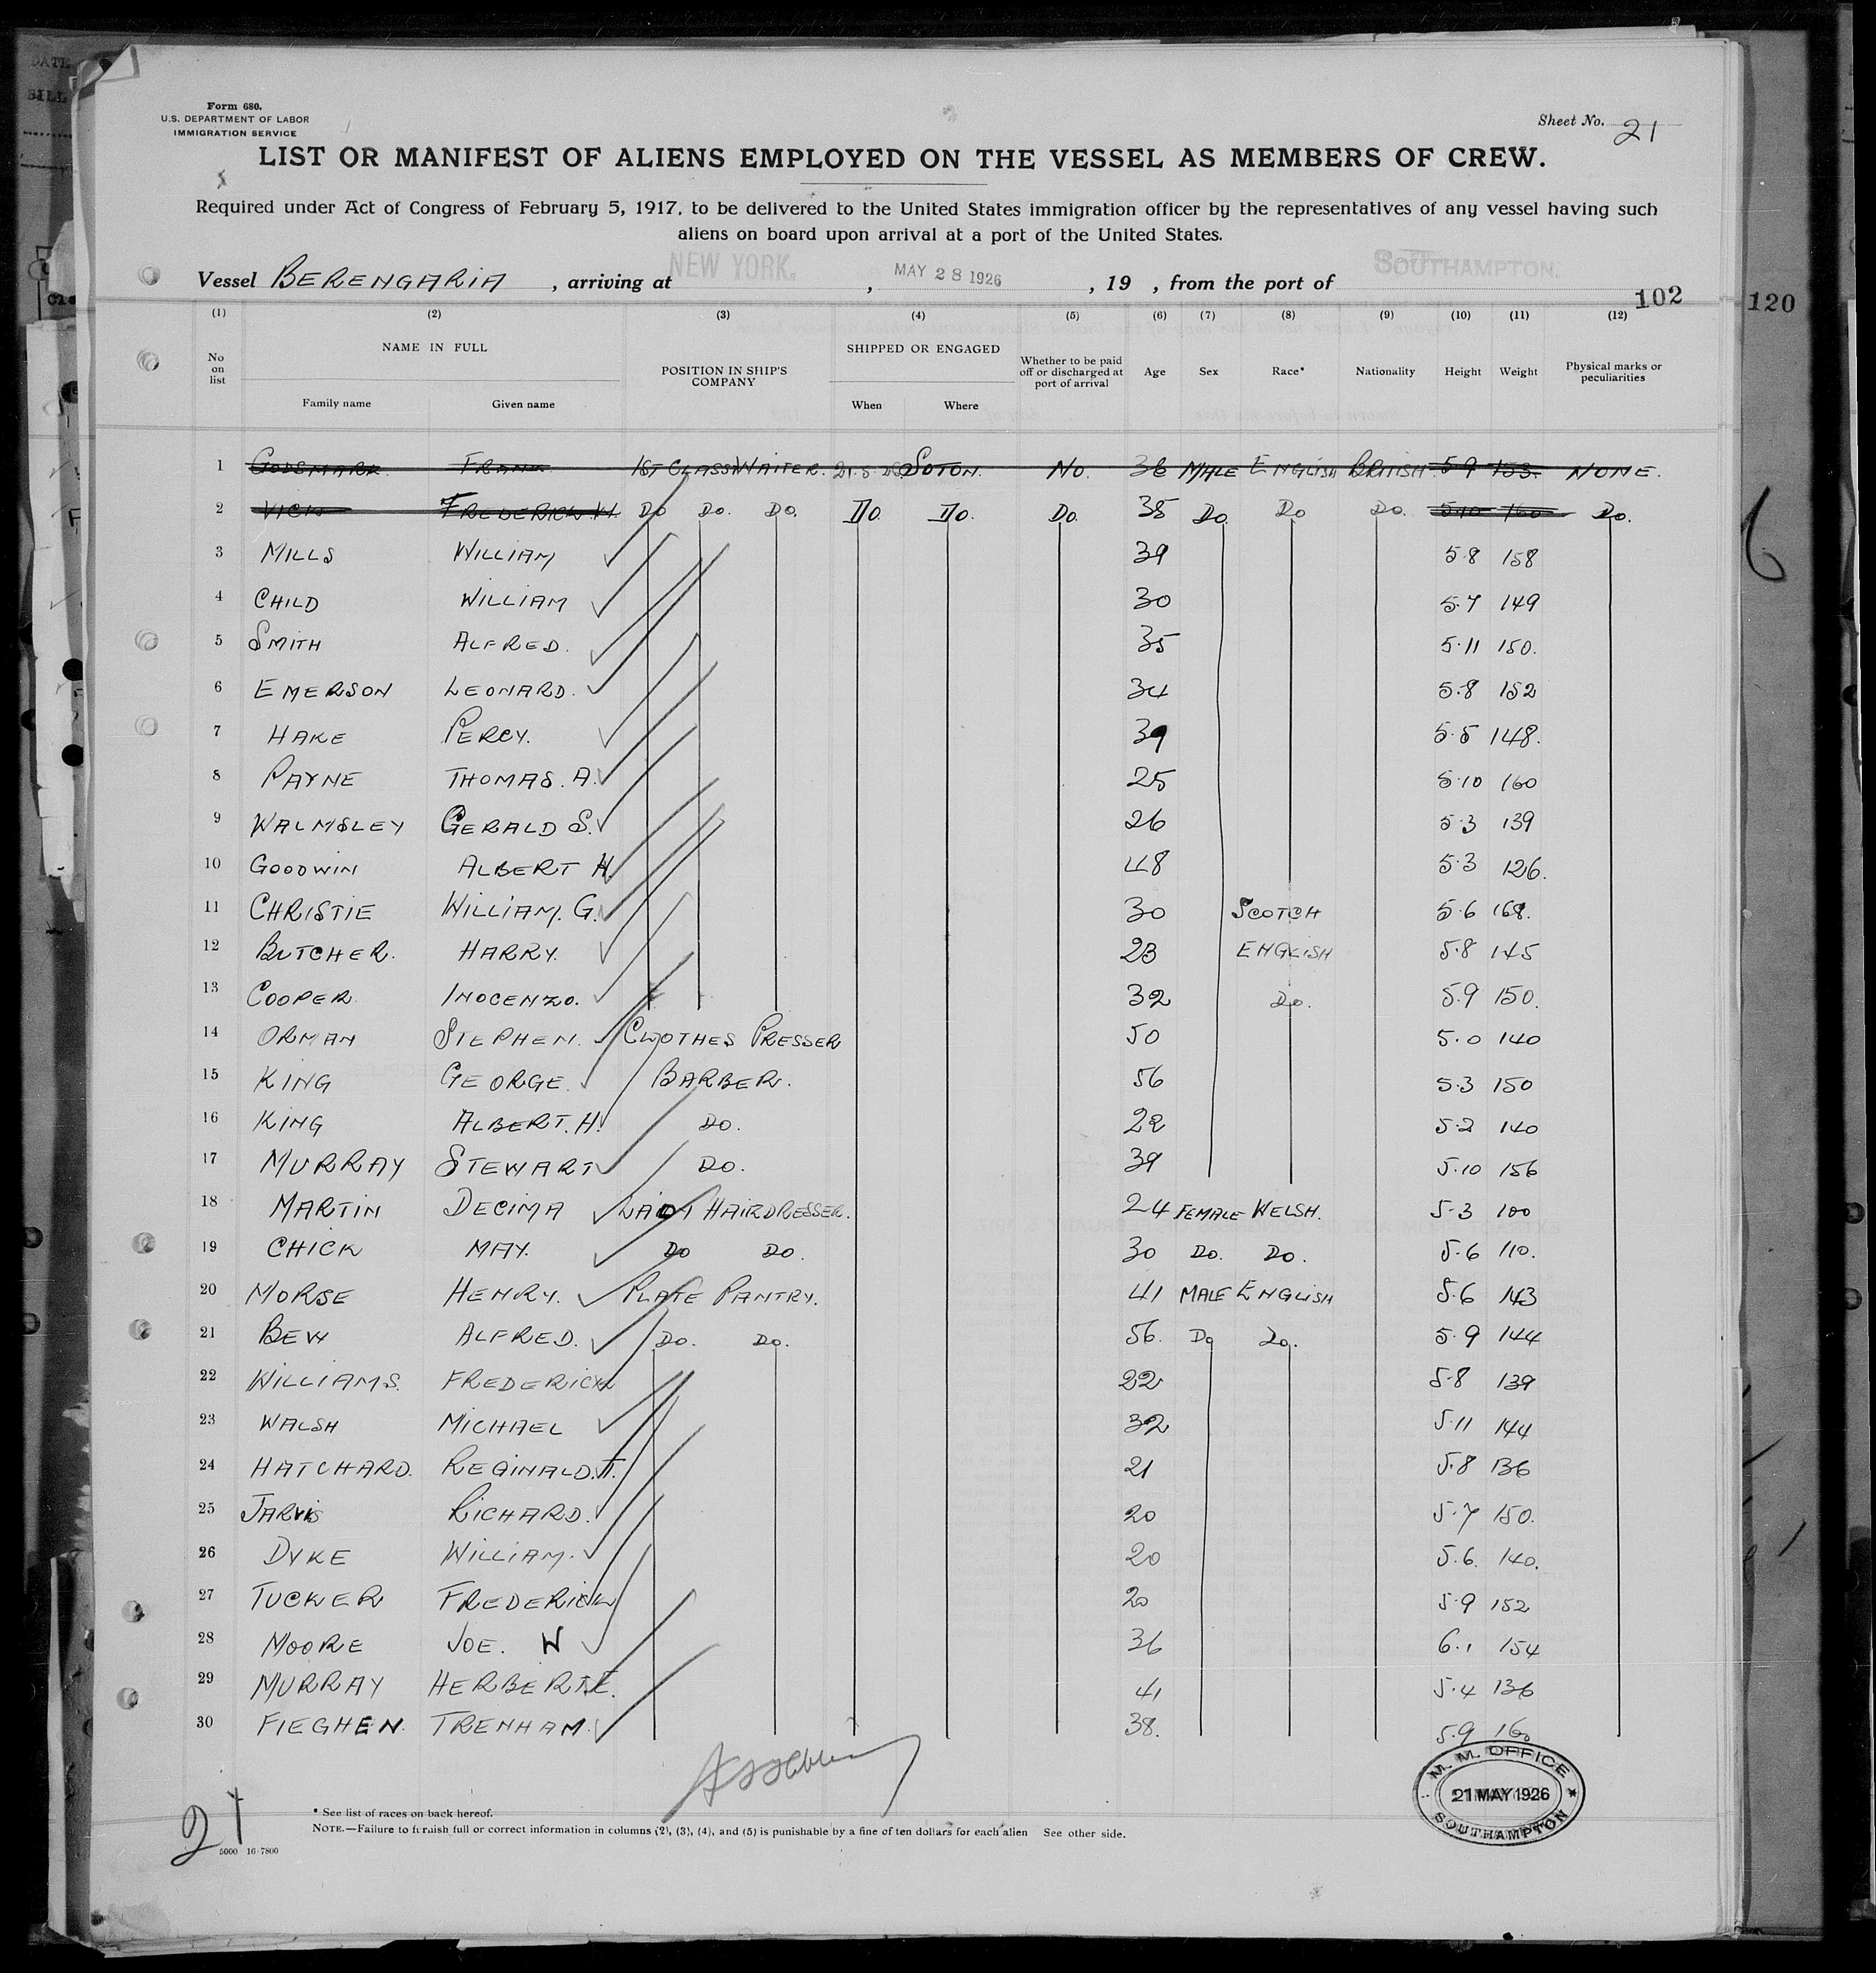 DATE
BILL
Form 680.
U.S. DEPARTMENT OF LABOR
IMMIGRATION SERVICE
Sheet No. 21
LIST OR MANIFEST OF ALIENS EMPLOYED ON THE VESSEL AS MEMBERS OF CREW.
Required under Act of Congress of February 5, 1917, to be delivered to the United States immigration officer by the representatives of any vessel having such
aliens on board upon arrival at a port of the United States.
Vessel BERENGARIA , arriving at NEW YORK. , MAY 28 1926 , 19 , from the port of SOUTHAMPTON.
102 120
(1) (2) (3) (4) (5) (6) (7) (8) (9) (10) (11) (12)
No on list NAME IN FULL POSITION IN SHIP'S COMPANY SHIPPED OR ENGAGED Whether to be paid off or discharged at port of arrival Age Sex Race* Nationality Height Weight Physical marks or peculiarities
Family name Given name When Where
1 GODSMARK FRANK 1ST CLASS WAITER. 21.5.26 SOTON. NO. 36 MALE ENGLISH BRITISH 5.9 153. NONE.
2 VICK FREDERICK W. DO DO. DO. DO. DO. DO. 38 DO. DO DO. 5.10 160 DO.
3 MILLS WILLIAM 39 5.8 158
4 CHILD WILLIAM 30 5.7 149
5 SMITH ALFRED. 35 5.11 150.
6 EMERSON LEONARD. 34 5.8 152
7 HAKE PERCY. 39 5.5 148.
8 PAYNE THOMAS. A. 25 5.10 160
9 WALMSLEY GERALD S. 26 5.3 139
10 GOODWIN ALBERT H. 48 5.3 126.
11 CHRISTIE WILLIAM. G. 30 SCOTCH 5.6 168.
12 BUTCHER. HARRY. 23 ENGLISH 5.8 145
13 COOPER INOCENZO. 32 DO. 5.9 150.
14 ORMAN STEPHEN. CLOTHES PRESSER 50 5.0 140
15 KING GEORGE. BARBER. 56 5.3 150
16 KING ALBERT. H. DO. 22 5.2 140
17 MURRAY STEWART DO. 39 5.10 156
18 MARTIN DECIMA LADY HAIRDRESSER. 24 FEMALE WELSH. 5.3 100
19 CHICK MAY. DO DO. 30 DO. DO. 5.6 110.
20 MORSE HENRY. PLATE PANTRY. 41 MALE ENGLISH 5.6 143
21 BEW ALFRED. DO. DO. 56. DO DO. 5.9 144
22 WILLIAMS. FREDERICK 22 5.8 139
23 WALSH MICHAEL 32 5.11 144
24 HATCHARD. REGINALD. T. 21 5.8 136
25 JARVIS RICHARD. 20 5.7 150.
26 DYKE WILLIAM. 20 5.6. 140.
27 TUCKER FREDERICK 20 5.9 152
28 MOORE JOE. W 36 6.1 154
29 MURRAY HERBERT. E. 41 5.4 136
30 FIEGHEN. TRENHAM. 38. 5.9 160
M. M. OFFICE
21 MAY 1926
SOUTHAMPTON
21
* See list of races on back hereof.
NOTE.—Failure to furnish full or correct information in columns (2), (3), (4), and (5) is punishable by a fine of ten dollars for each alien See other side.
5000 16-7800